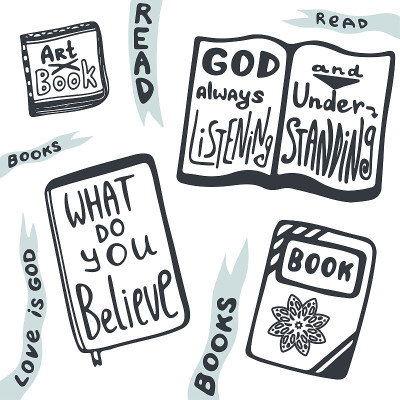 Art
Book
READ
READ
GOD
Always
Listening
and
Under-
STANDING
BOOKS
WHAT
DO
YOU
Believe
LOVE is GOD
BOOKS
BOOK